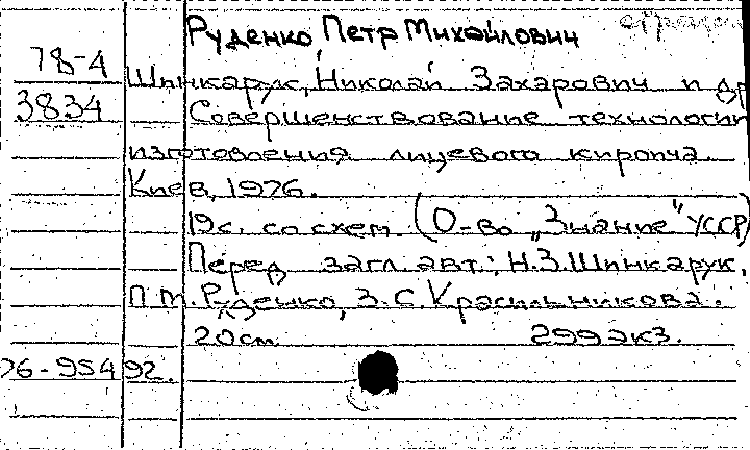 Руденко, Петр Михайлович
78-4
Шинкарук, Николай Захарович и др
3834
Совершенствование технологии
изготовления лицевого кирпича.
Киев, 1976.
19с. со схем. (О-во „Знание" УССР)
Перед загл. авт.: Н.З.Шинкарук,
П.М. Руденко, З.С.Красильникова.
20см 299экз.
76-95492.